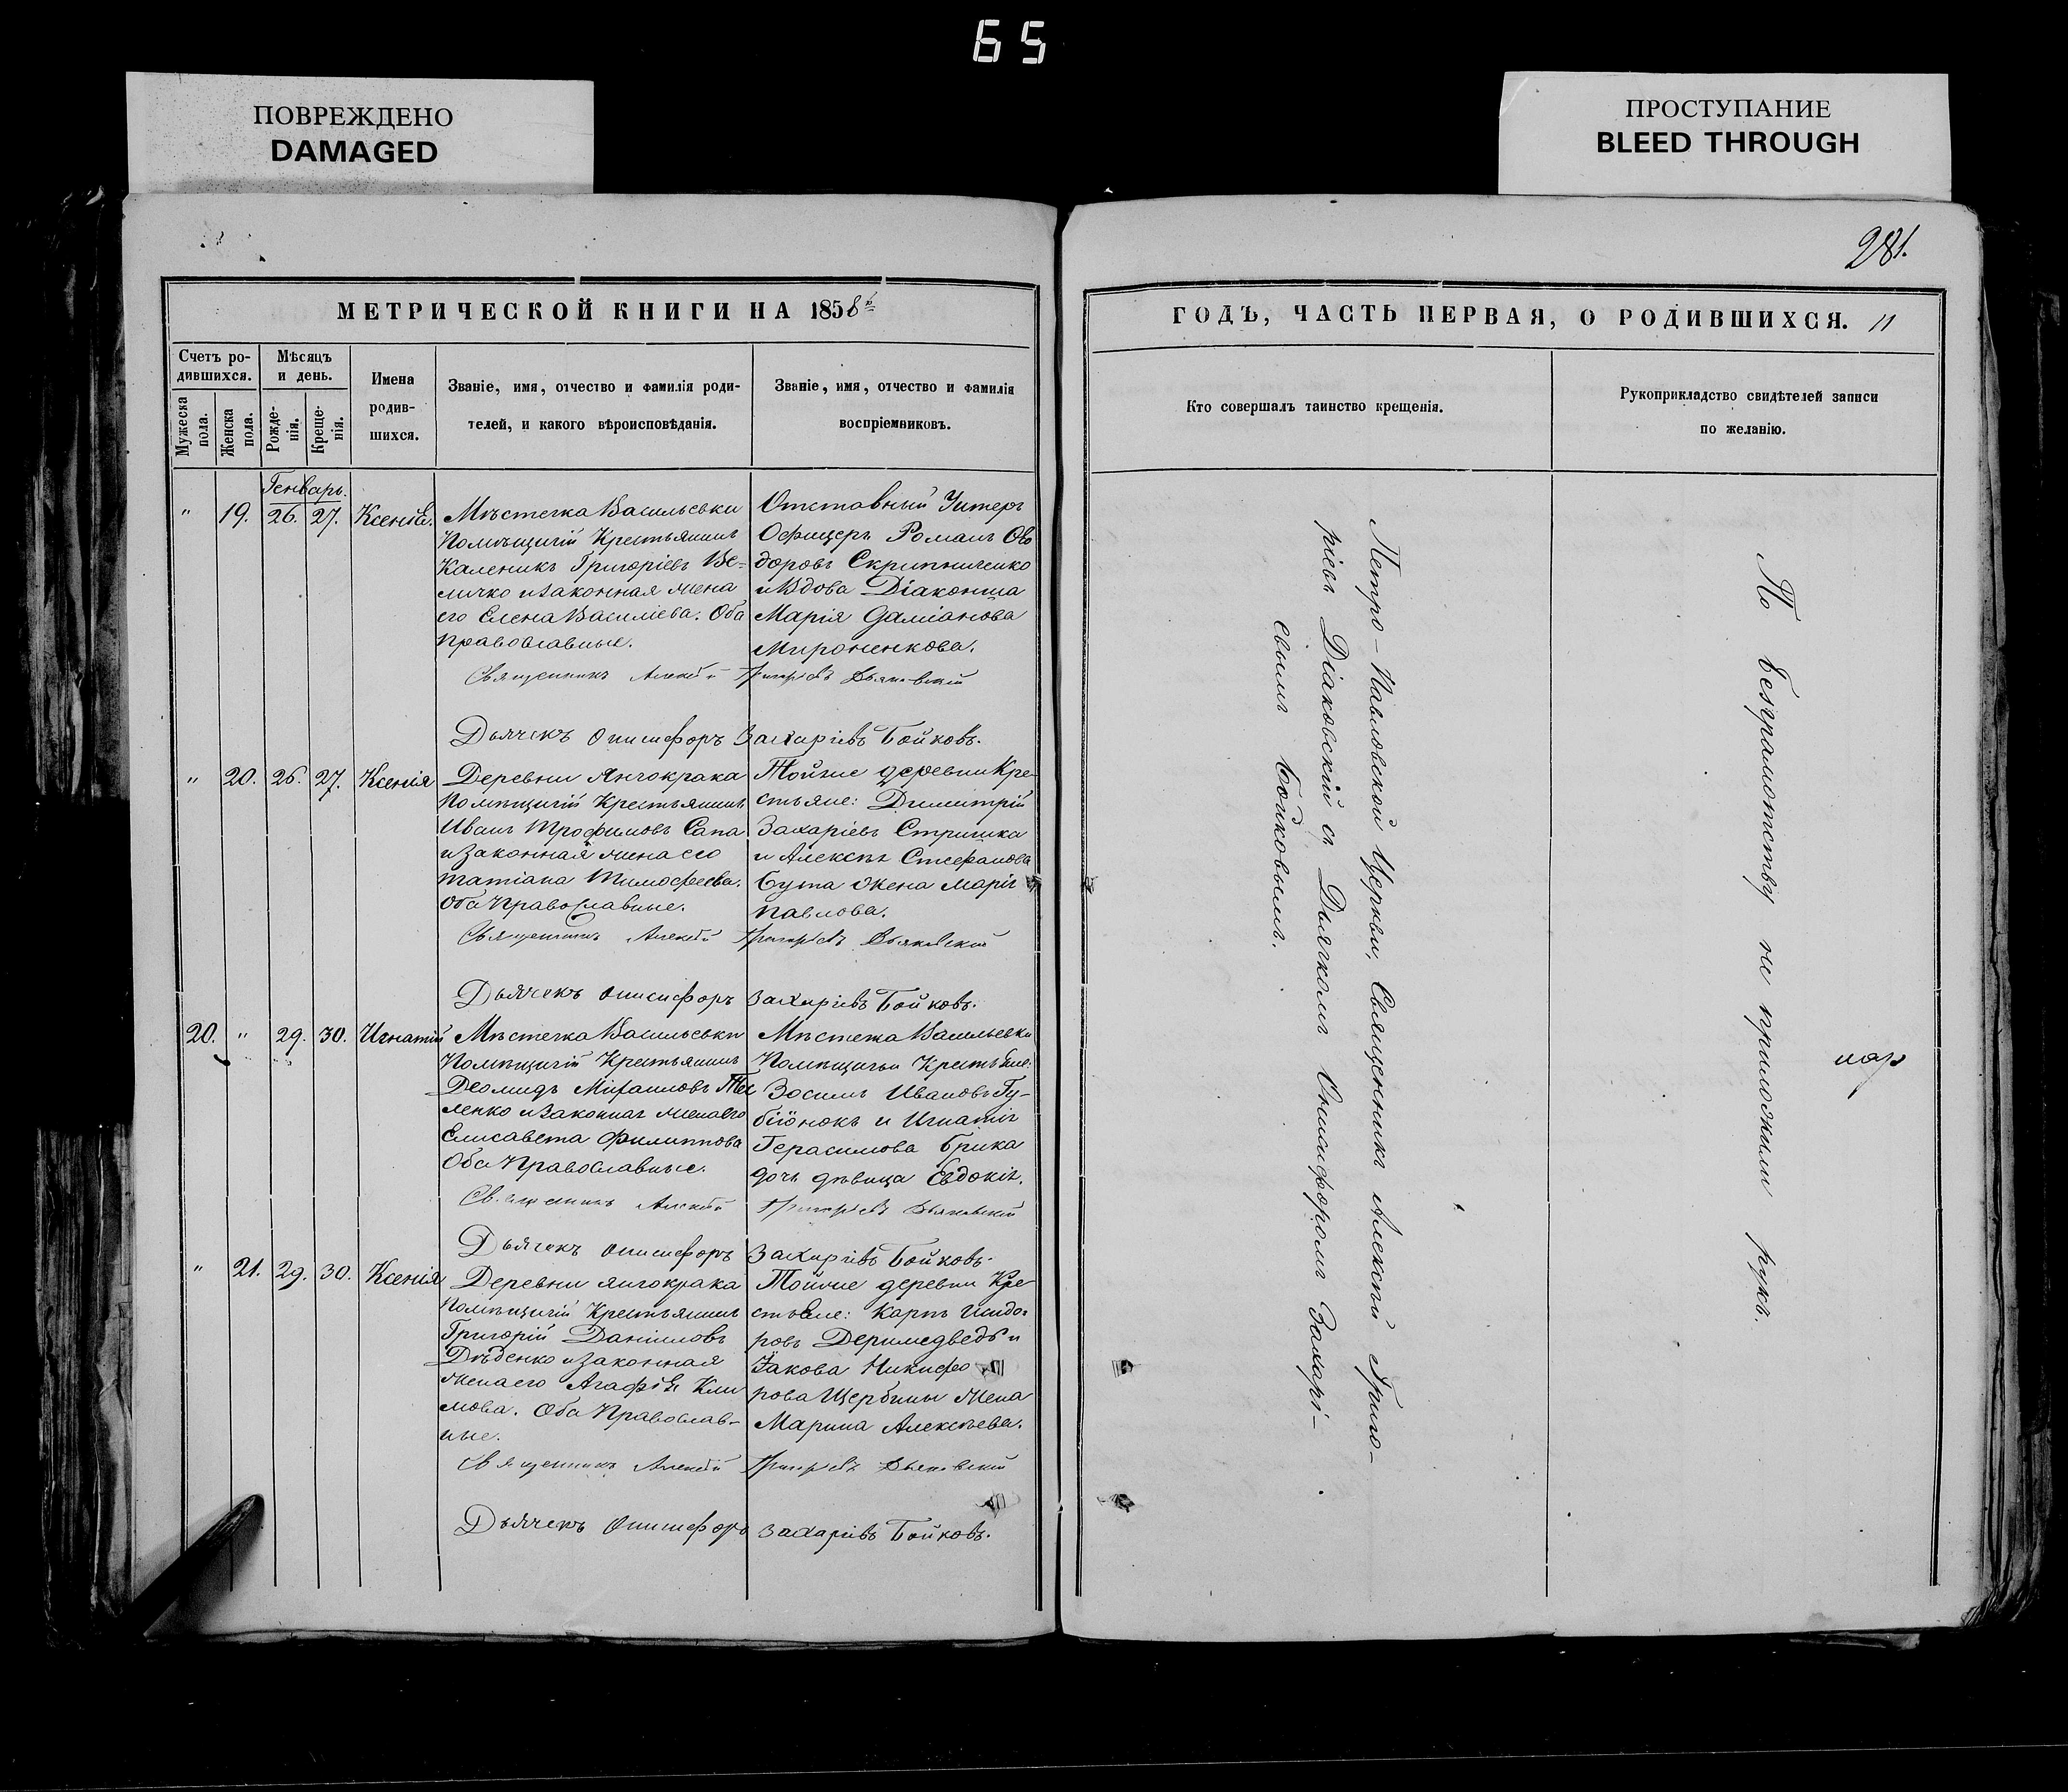 65
ПОВРЕЖДЕНО
DAMAGED
ПРОСТУПАНИЕ
BLEED THROUGH
281.
МЕТРИЧЕСКОЙ КНИГИ НА 1858й
Счетъ ро-
дившихся.
Мужеска
пола.
Женска
пола.
Мѣсяцъ
и день.
Рожде-
нія.
Креще-
нія.
Имена
родив-
шихся.
Званіе, имя, отчество и фамилія роди-
телей, и какого вѣроисповѣданія.
Званіе, имя, отчество и фамилія
воспріемниковъ.
Генварь.
" 19. 26. 27. Ксенія.
Мѣстечка Васильевки
Помѣщичій Крестьянинъ
Каленикъ Григоріевъ Ве-
личко и законная жена
его Елена Василіева. Оба
Православные.
Отставный Унтеръ
Офицеръ Романъ Ѳео
доровъ Скрипниченко
и Вдова Діаконша
Марія Даміанова
Мироненкова.
Священникъ Алексій Григоріевъ Дьяковскій
Дьячекъ Онисифоръ Захаріевъ Бойковъ.
" 20. 26. 27. Ксенія
Деревни Янчокрака
Помѣщичій Крестьянинъ
Иванъ Трофимовъ Сапа
и законная жена его
Татіана Тимофеева.
Оба Православные.
Тойже деревни Кре-
стьяне: Димитрій
Захаріевъ Стришка
и Алексѣя Стефанова
Бута жена Марія
Павлова.
Священникъ Алексій Григоріевъ Дьяковскій
Дьячекъ Онисифоръ Захаріевъ Бойковъ.
20. " 29. 30. Игнатій
Мѣстечка Васильевки
Помѣщичій Крестьянинъ
Деомидъ Михаиловъ
ленко и законная жена его
Елисавета Филиппова
Оба Православные.
Мѣстечка Васильевки
Помѣщичьи Крестьяне:
Зосимъ Ивановъ Гу-
біонокъ и Игнатія
Герасимова Брика
дочь дѣвица Евдокія.
Священникъ Алексій Григоріевъ Дьяковскій
Дьячекъ Онисифоръ Захаріевъ Бойковъ.
" 21. 29. 30. Ксенія
Деревни Янчокрака
Помѣщичій Крестьянинъ
Григорій Даніиловъ
Дѣденко и законная
жена его Агафія Кли
мова. Оба Православ-
ные.
Тойже деревни Кре-
стьяне: Карпъ Исидо-
ровъ Деримедведь и
Іакова Никифо
рова Щербины жена
Марина Алексѣева.
Священникъ Алексій Григоріевъ Дьяковскій
Дьячекъ Онисифоръ Захаріевъ Бойковъ.
ГОДЪ, ЧАСТЬ ПЕРВАЯ, О РОДИВШИХСЯ. 11
Кто совершалъ таинство крещенія.
Рукоприкладство свидѣтелей записи
по желанію.
Петро-Павловской Церкви, Священникъ Алексій Григо-
ріевъ Діаковскій съ Дьячкомъ Онисифоромъ Захарі-
евымъ Бойковымъ.
По безграмотству не приложили рукъ.